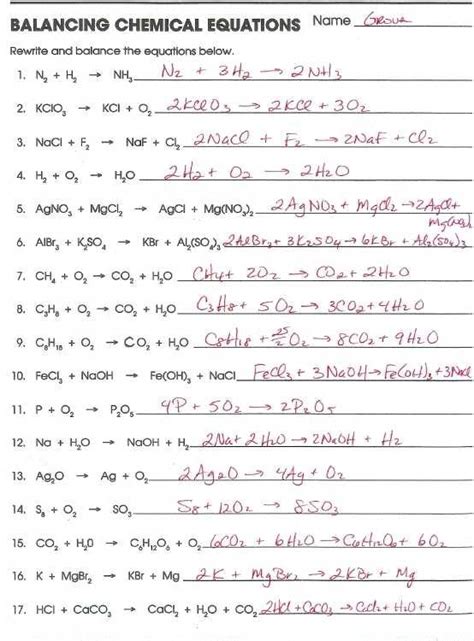 BALANCING CHEMICAL EQUATIONS Name Group
Rewrite and balance the equations below.
1. N₂ + H₂ → NH₃ N₂ + 3H₂ → 2NH₃
2. KClO₃ → KCl + O₂ 2KClO₃ → 2KCl + 3O₂
3. NaCl + F₂ → NaF + Cl₂ 2NaCl + F₂ → 2NaF + Cl₂
4. H₂ + O₂ → H₂O 2H₂ + O₂ → 2H₂O
5. AgNO₃ + MgCl₂ → AgCl + Mg(NO₃)₂ 2AgNO₃ + MgCl₂ → 2AgCl + Mg(NO₃)₂
6. AlBr₃ + K₂SO₄ → KBr + Al₂(SO₄)₃ 2AlBr₃ + 3K₂SO₄ → 6KBr + Al₂(SO₄)₃
7. CH₄ + O₂ → CO₂ + H₂O CH₄ + 2O₂ → CO₂ + 2H₂O
8. C₃H₈ + O₂ → CO₂ + H₂O C₃H₈ + 5O₂ → 3CO₂ + 4H₂O
9. C₈H₁₈ + O₂ → CO₂ + H₂O C₈H₁₈ + 25/2 O₂ → 8CO₂ + 9H₂O
10. FeCl₃ + NaOH → Fe(OH)₃ + NaCl FeCl₃ + 3NaOH → Fe(OH)₃ + 3NaCl
11. P + O₂ → P₂O₅ 4P + 5O₂ → 2P₂O₅
12. Na + H₂O → NaOH + H₂ 2Na + 2H₂O → 2NaOH + H₂
13. Ag₂O → Ag + O₂ 2Ag₂O → 4Ag + O₂
14. S₈ + O₂ → SO₃ S₈ + 12O₂ → 8SO₃
15. CO₂ + H₂O → C₆H₁₂O₆ + O₂ 6CO₂ + 6H₂O → C₆H₁₂O₆ + 6O₂
16. K + MgBr₂ → KBr + Mg 2K + MgBr₂ → 2KBr + Mg
17. HCl + CaCO₃ → CaCl₂ + H₂O + CO₂ 2HCl + CaCO₃ → CaCl₂ + H₂O + CO₂